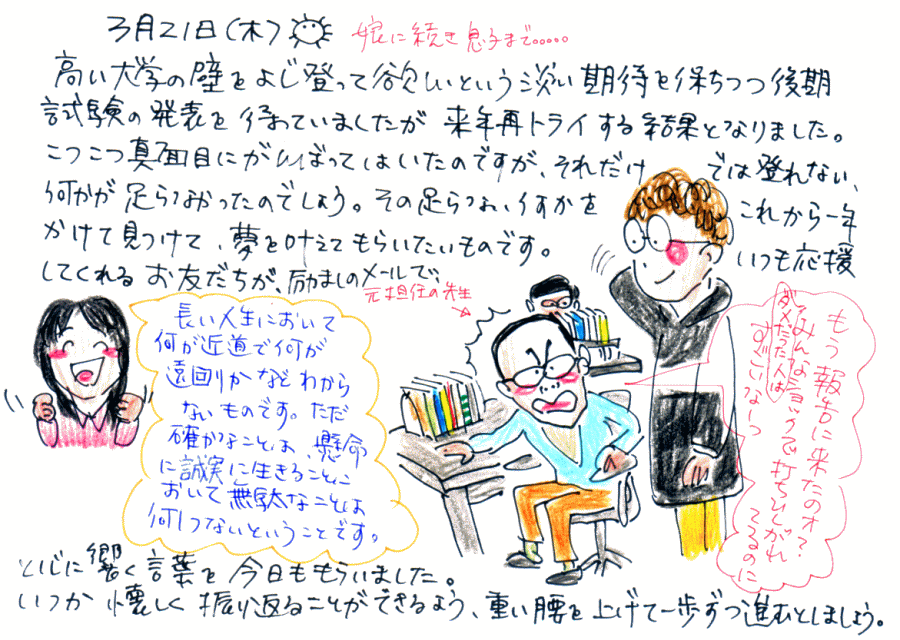 3月21日(木)
娘に続き息子まで……
高い大学の壁をよじ登って欲しいという淡い期待を保ちつつ後期
試験の発表を待っていましたが来年再トライする結果となりました。
こつこつ真面目にがんばってはいたのですが、それだけでは登れない、
何かが足らなかったのでしょう。その足らない何かをこれから一年
かけて見つけて、夢を叶えてもらいたいものです。いつも応援
してくれるお友だちが、励ましのメールで、
元担任の先生
長い人生において
何が近道で何が
遠回りかなどわから
ないものです。ただ
確かなことは、懸命
に誠実に生きることに
おいて無駄なことは
何1つないということです。
もう報告に来たのオ?
みんなショックで打ちひしがれ
てるのに
ダメだった人は
すごいなっ
と心に響く言葉を今日ももらいました。
いつか懐しく振り返ることができるよう、重い腰を上げて一歩ずつ進むとしましょう。